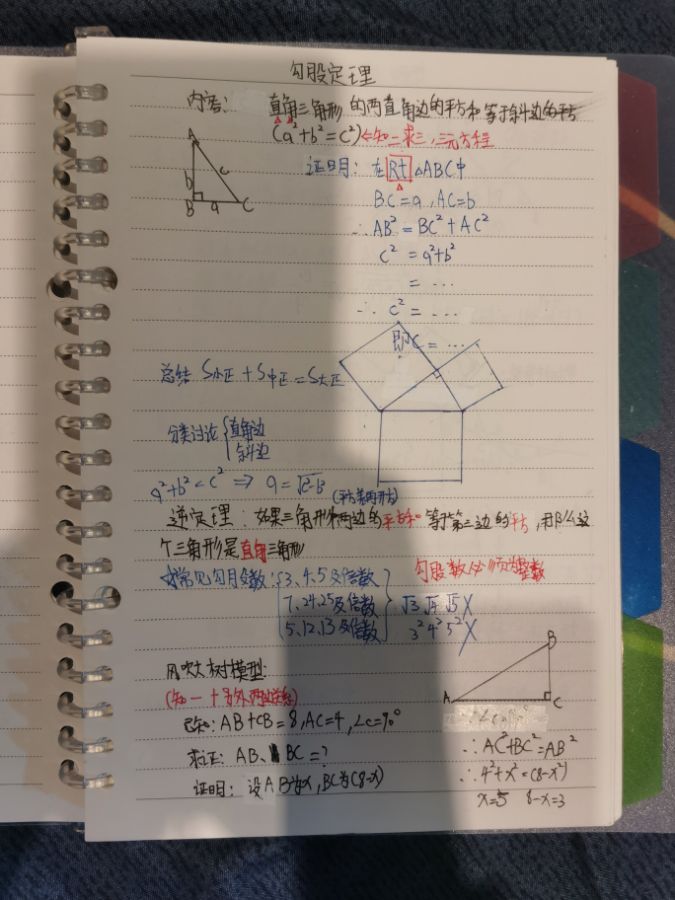 勾股定理
内容: 直角三角形的两直角边的平方和等于斜边的平方
(a²+b²=c²)←知一求三,三元方程
A
b
c
B
a
C
证明: 在Rt△ABC中
BC=a,AC=b
∴AB²=BC²+AC²
c²=a²+b²
=…
∴c²=…
即c=…
总结 S小正+S中正=S大正
分类讨论{直角边
斜边
(平方差再开方)
逆定理:如果三角形两边的平方和等于第三边的平方,那么这
个三角形是直角三角形
常见勾股数:{3、4、5及倍数
7、24、25及倍数
5、12、13及倍数
勾股数必须为整数
√3、√4、√5 X
3² 4² 5² X
风吹大树模型:
已知:AB+CB=8,AC=4,∠C=90°
求证:AB、BC=?
证明:设AB为x,BC为(8-x)
A
B
C
∠C=90°
∴AC²+BC²=AB²
∴4²+x²=(8-x²)
x=5 8-x=3